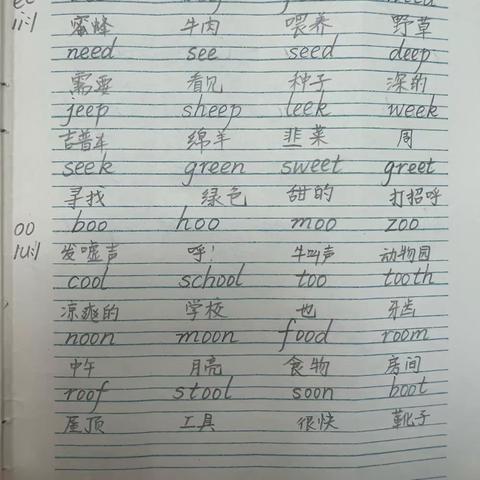 ee
/iː/ 蜜蜂 牛肉 喂养 野草
need see seed deep
需要 看见 种子 深的
jeep sheep leek week
吉普车 绵羊 韭菜 周
seek green sweet greet
寻找 绿色 甜的 打招呼
oo boo hoo moo zoo
/uː/ 发嘘声 呼! 牛叫声 动物园
cool school too tooth
凉爽的 学校 也 牙齿
noon moon food room
中午 月亮 食物 房间
roof stool soon boot
屋顶 工具 很快 靴子